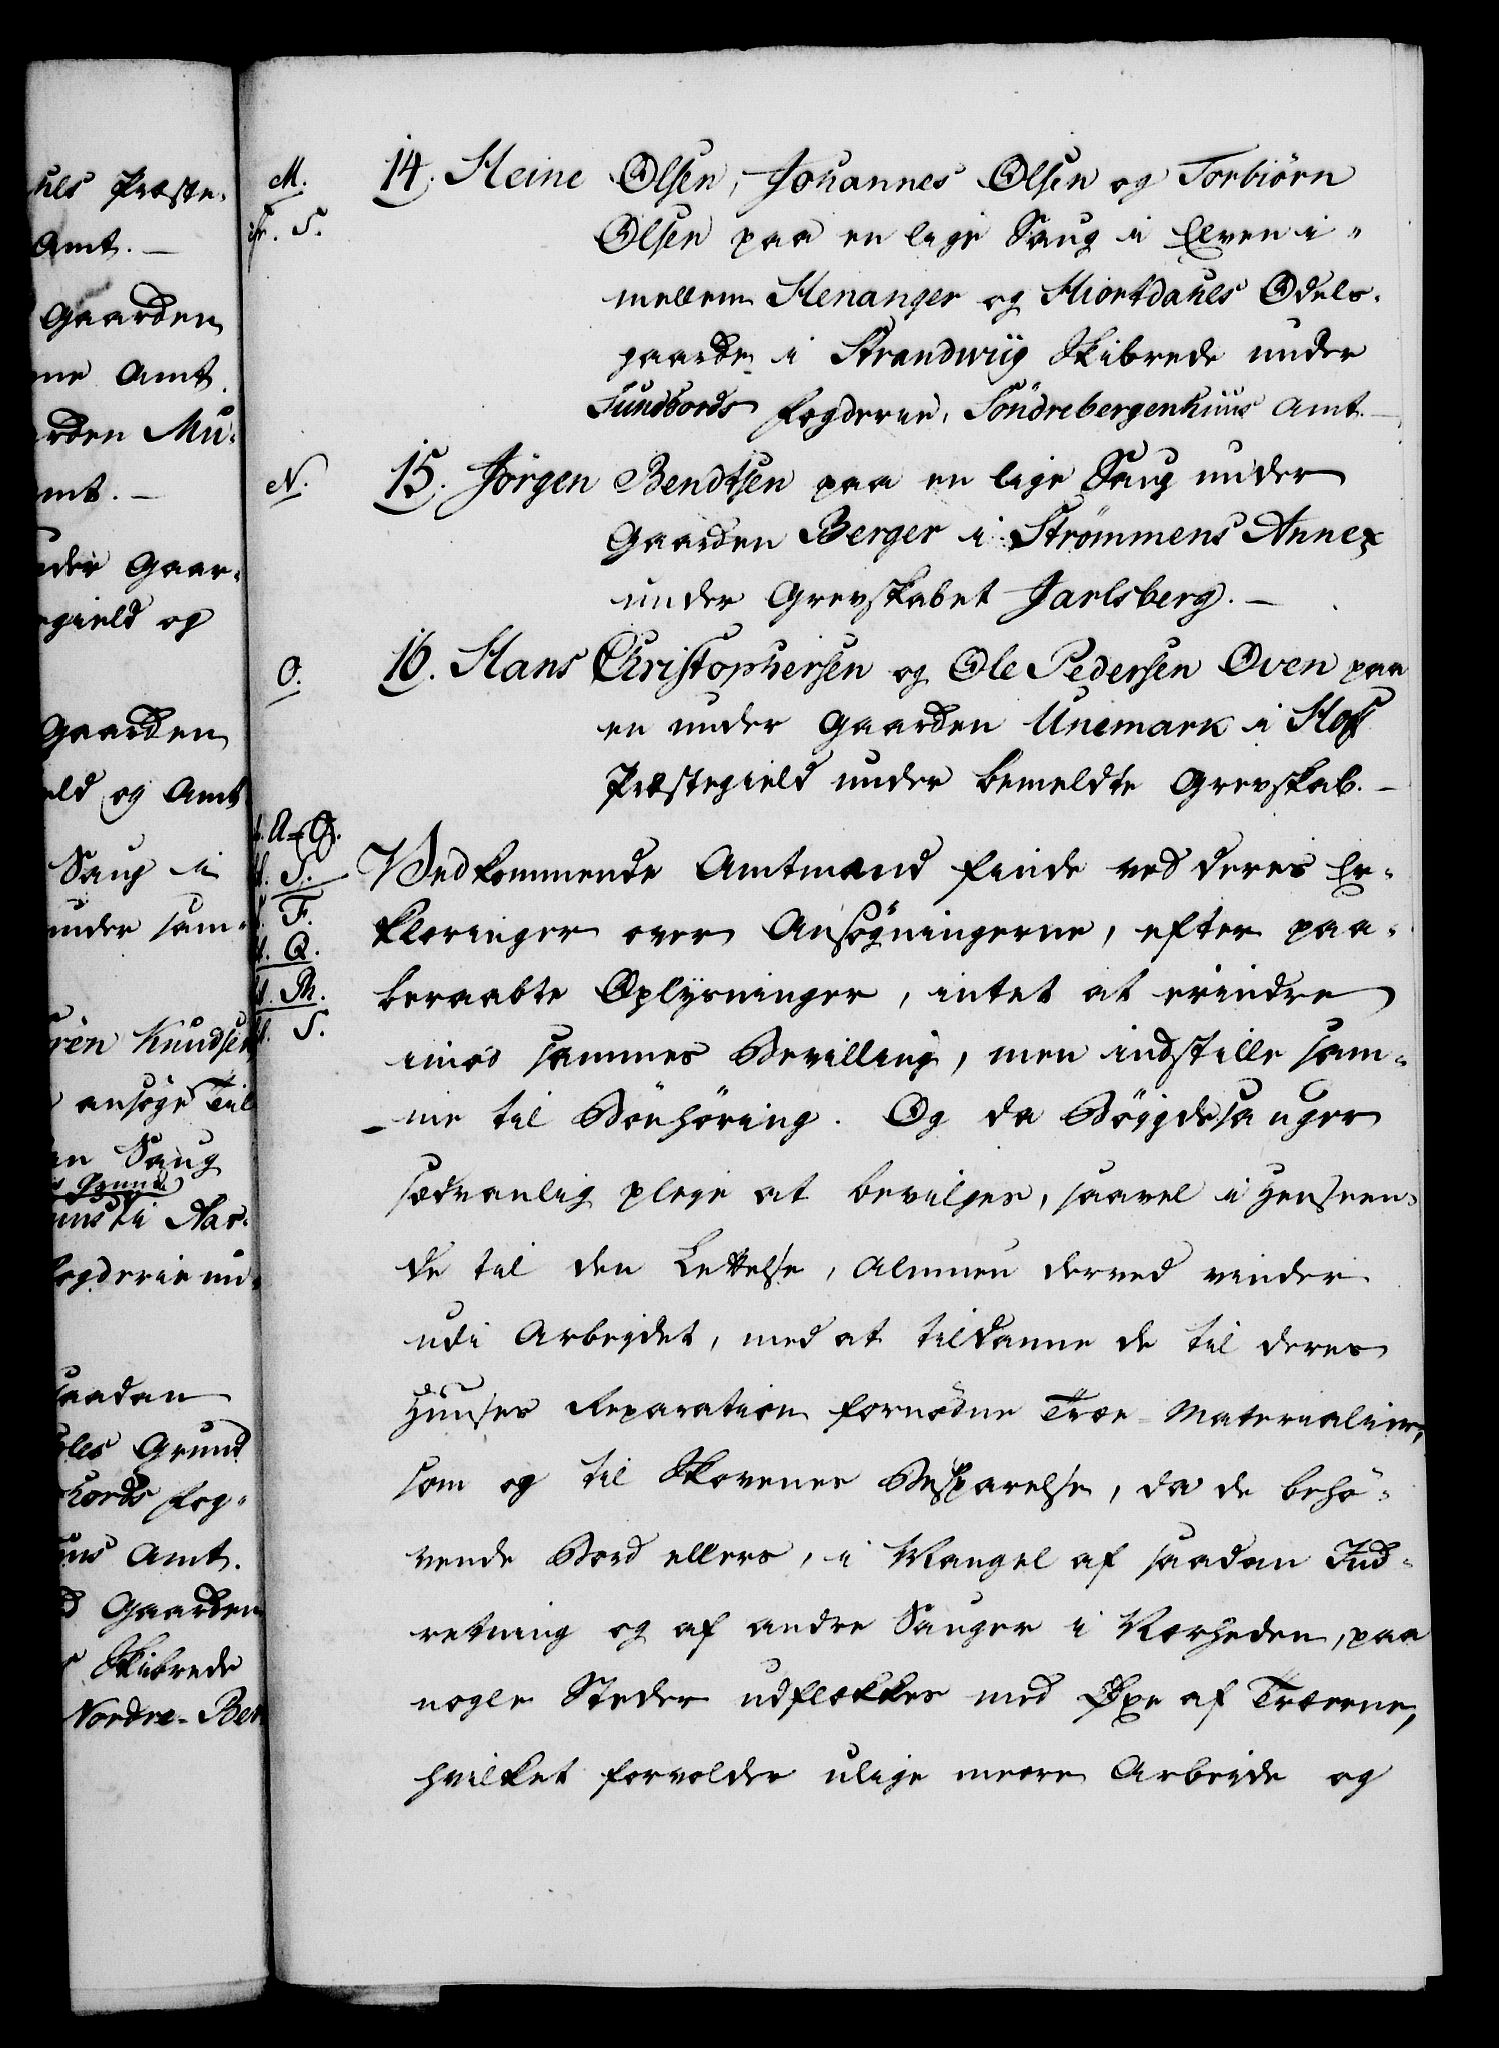 hls Præste-
Amt. —
Gaarden
ne Amt.
rden Mu-
mt. —
nder Gaar-
egield og
Gaarden
ld og Amt
Saug i
under sam-
ren Knudsen
ansøge Til
en Saug
s Grund
uus i Aas-
Fogderie un-
saadan
les Grund
hords Fog-
uus Amt.
d Gaarden
r Skibrede
Nordre-Ber
M.
cfr. S.
14. Heine Olsen, Johannes Olsen og Torbiörn
Olsen paa en lige Saug i Elven i-
mellem Henanger og Hiortdahls Odels-
gaarde i Strandwiig Skibrede under
Sundhords Fogderie, Söndrebergenhuus Amt. —
N.
15. Jörgen Bendtsen paa en lige Saug under
Gaarden Berger i Strömmens Annex
under Grevskabet Jarlsberg. —
O.
16. Hans Christophersen og Ole Pedersen Oven paa
en under Gaarden Unemark i Hofs
Præstegield under bemeldte Grevskab. —
f. A-O.
f. S.
f. F.
f. Q.
f. Ph.
f. S.
Vedkommende Amtmænd finde ved deres Er-
klæringer over Ansøgningerne, efter paa-
beraabte Oplysninger, intet at erindre
imod sammes Bevilling, men indstille sam-
me til Bönhöring. Og da Böygdesauger
sædvanlig pleje at bevilges, saavel i Henseen-
de til den Lettelse, Almuen derved vinder
udi Arbejdet, med at tildanne de til deres
Huuses Reparation fornödne Træe-Materialier,
som og til Skovenes Besparelse, da de behö-
vende Bord ellers, i Mangel af saadan Ind-
retning og af andre Sauger i Nærheden, paa
nogle Steder udflekkes med Øxe af Træerne,
hvilket forvolder ulige meere Arbejde og